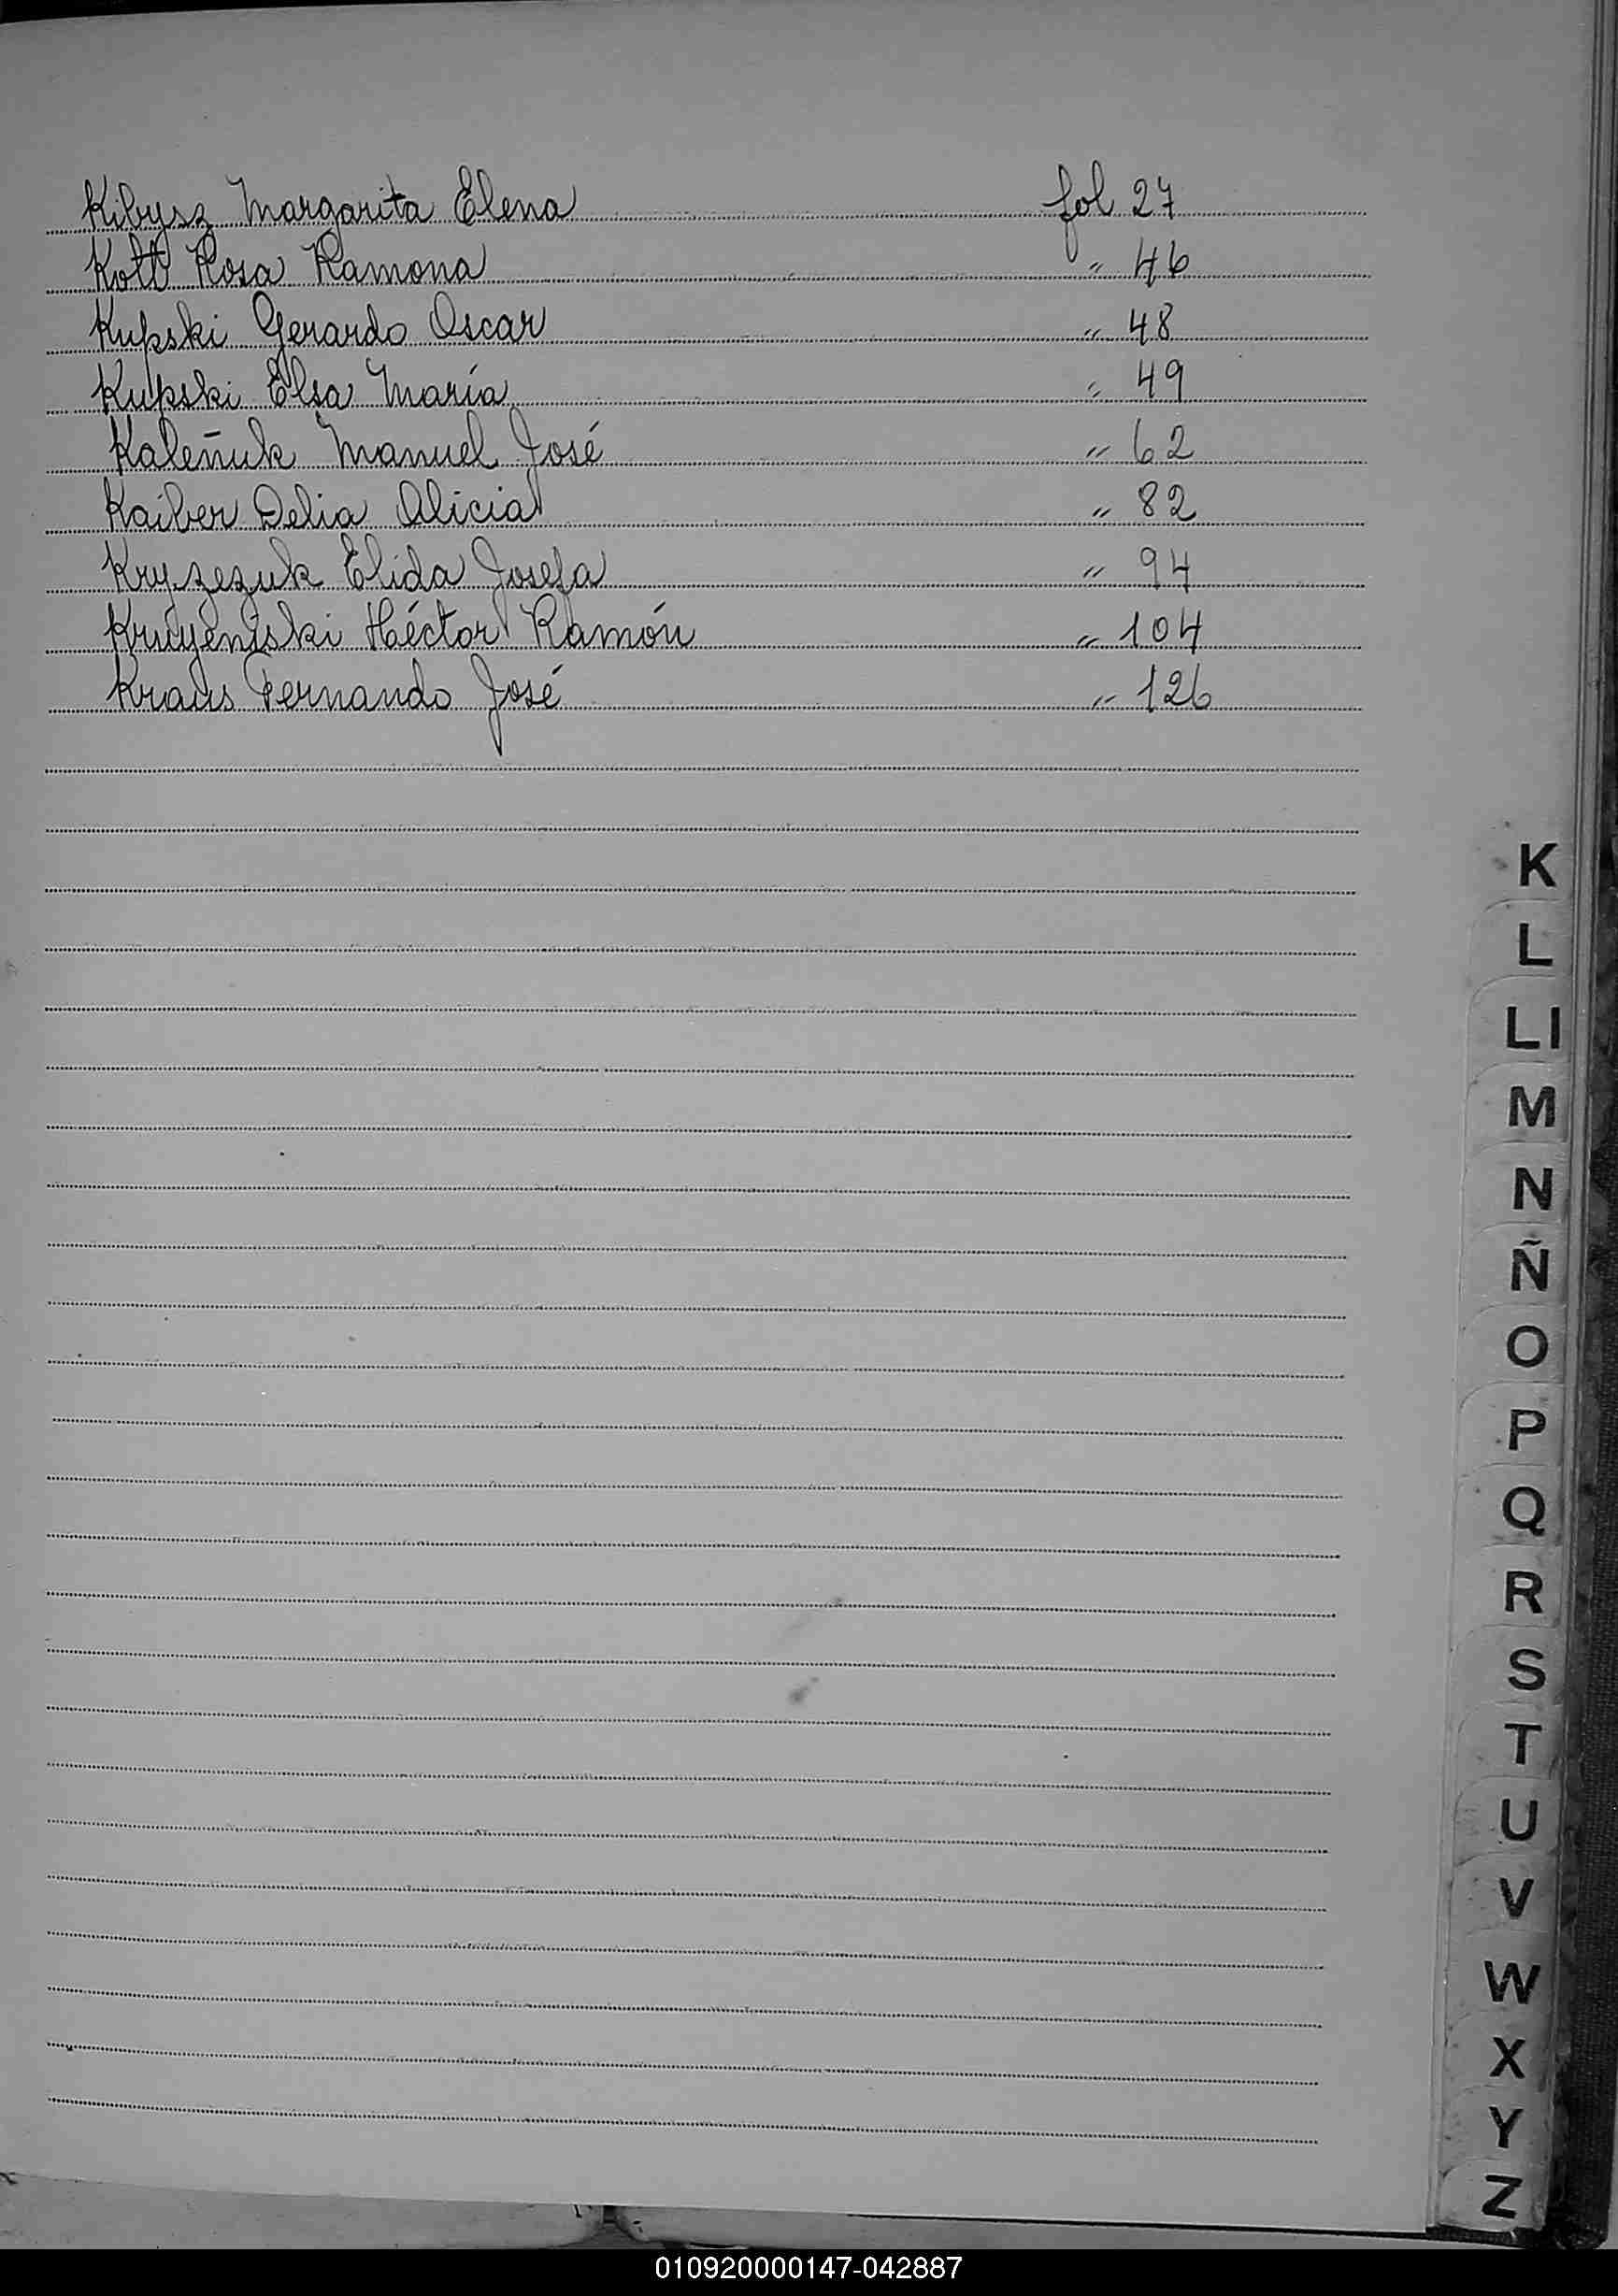 Kibysz Margarita Elena fol 27
Kott Rosa Ramona " 46
Kupski Gerardo Oscar " 48
Kupski Elsa María " 49
Kaleñuk Manuel José " 62
Kaiber Delia Alicia " 82
Kryzezuk Elida Josefa " 94
Kruyeniski Héctor Ramón " 104
Kraus Fernando José " 126
K
L
Ll
M
N
Ñ
O
P
Q
R
S
T
U
V
W
X
Y
Z
010920000147-042887